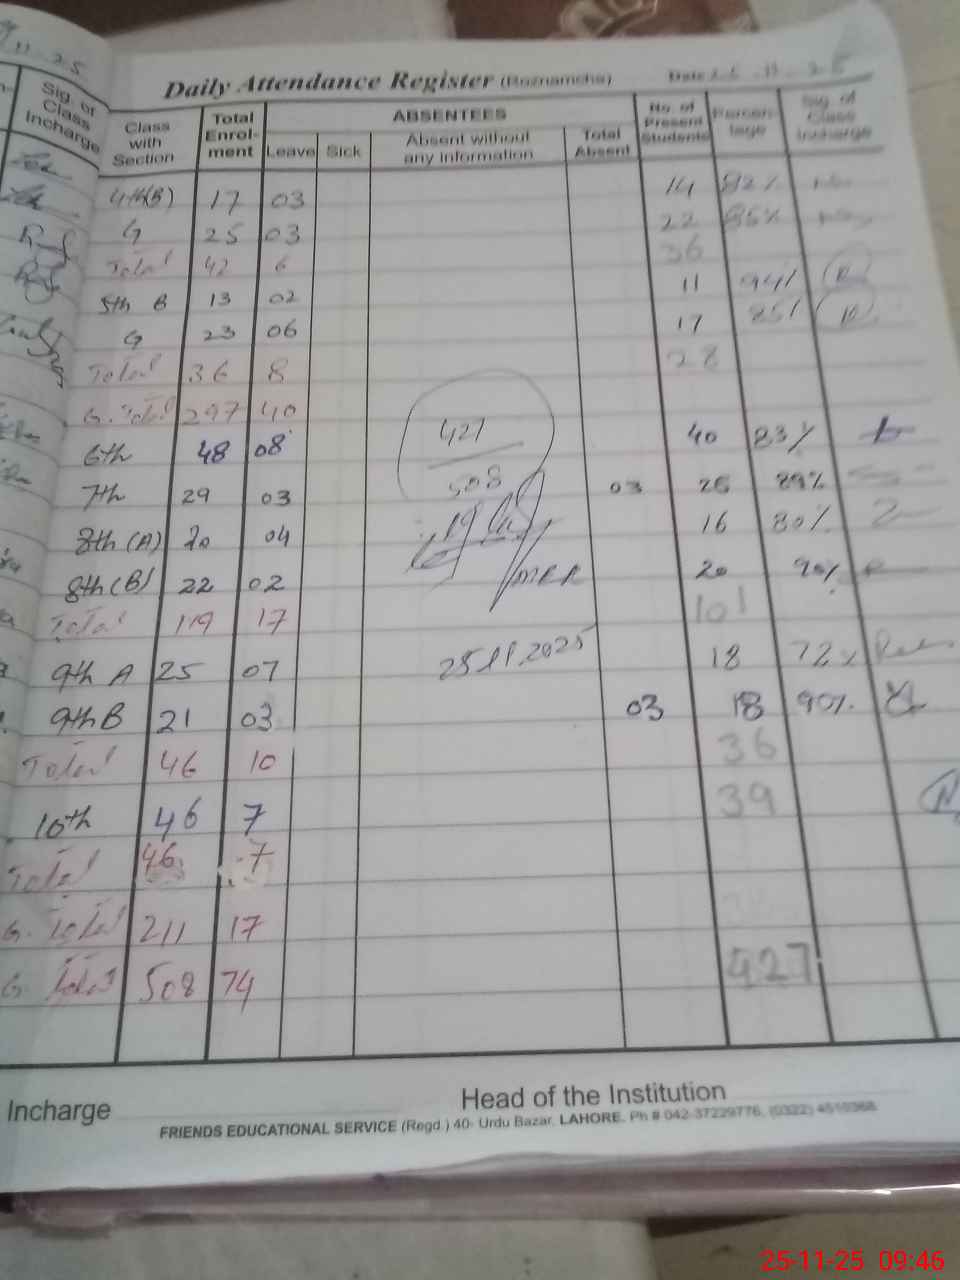 11 25
Sig. of
Class
Incharge
Daily Attendance Register (Roznamcha)
Class
with
Section
Total
Enrol-
ment
ABSENTEES
Leave
Sick
Absent without
any information
Total
Absent
No. of
Present
Students
Percen-
tage
Sig. of
Class
Incharge
4th(B) 17 03 14 82%
G 25 03 22 85%
Total 42 6 36
5th B 13 02 11 94%
G 23 06 17 85%
Total 36 8 28
G. Total 297 40
6th 48 08 40 83%
7th 29 03 03 26 89%
8th (A) 20 04 16 80%
8th (B) 22 02 20 90%
Total 119 17 101
9th A 25 07 18 72%
9th B 21 03 03 18 90%
Total 46 10 36
10th 46 7 39
Total 46 7
G. Total 211 17
G. Total 508 74 427
427
508
25.11.2025
Incharge
Head of the Institution
FRIENDS EDUCATIONAL SERVICE (Regd.) 40- Urdu Bazar, LAHORE. Ph # 042-37229776, (0322) 4519968
25-11-25 09:46